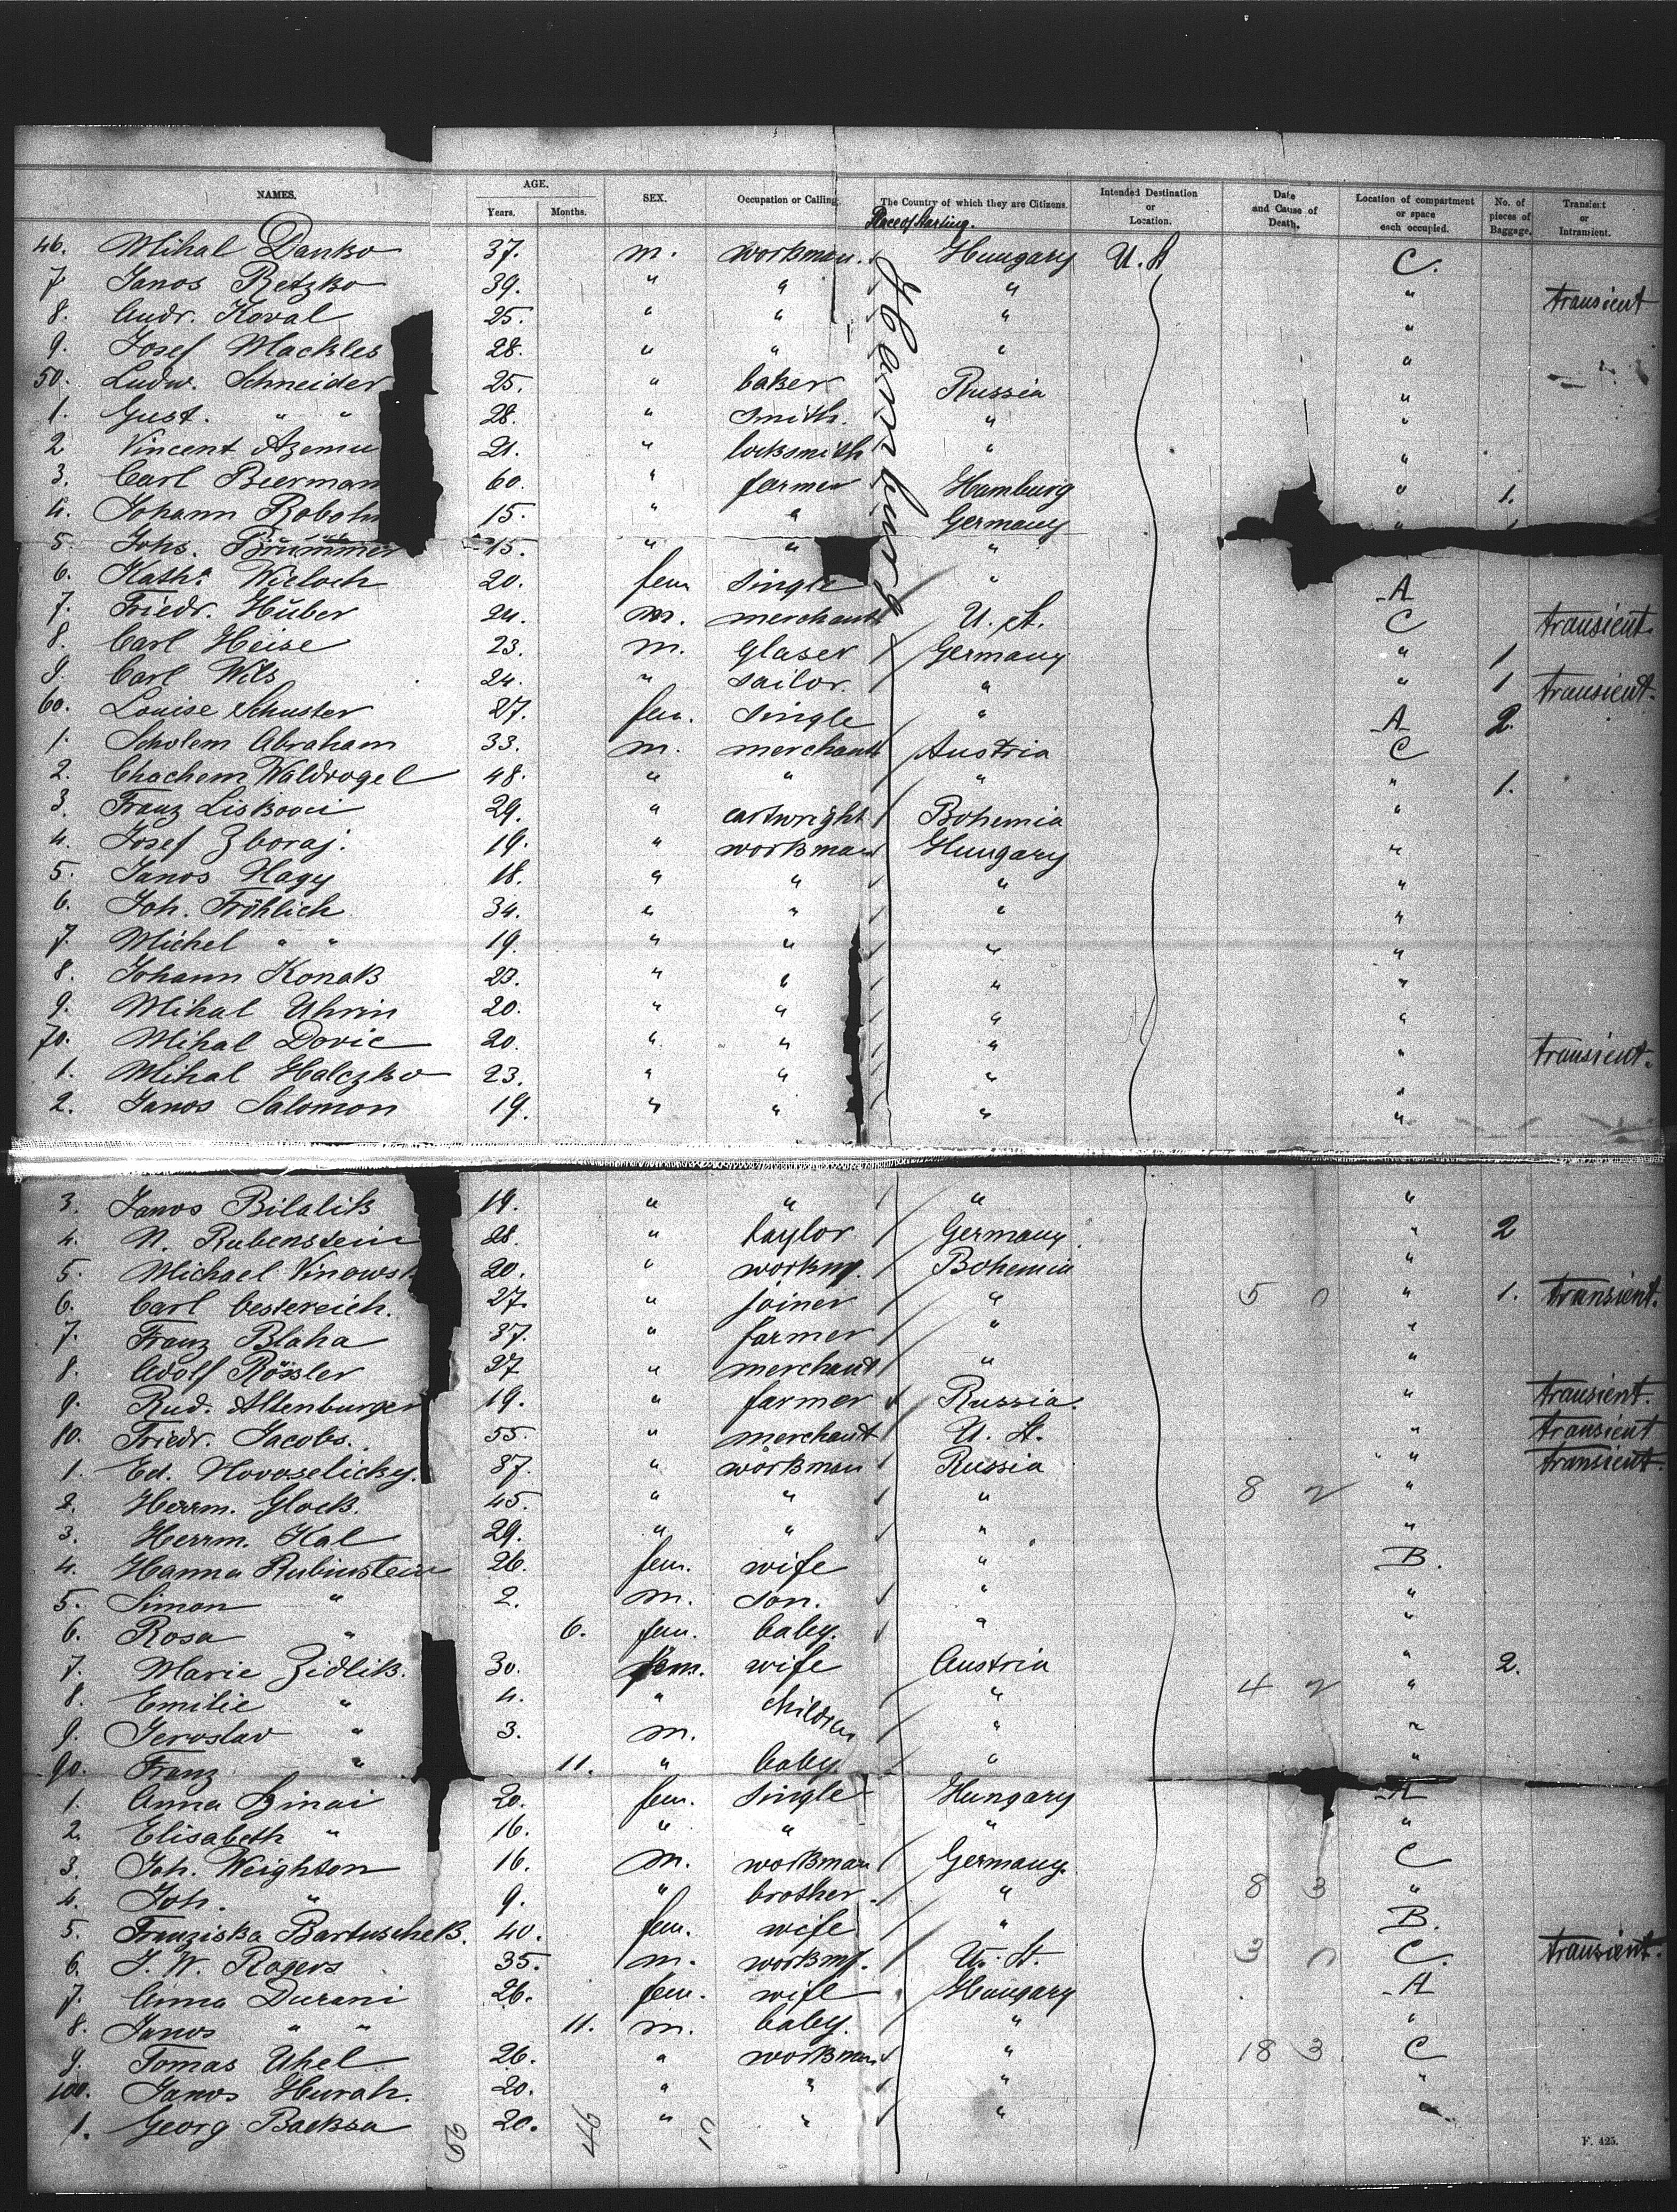 NAMES. AGE. Years. Months. SEX. Occupation or Calling. The Country of which they are Citizens. Intended Destination or Location. Date and Cause of Death. Location of compartment or space each occupied. No. of pieces of Baggage. Transient or Intransient.
Place of Starting.
Hamburg
46. Mihal Danko 37. m. workman. Hungary U. St C.
7. Janos Retzko 39. " " " " transient
8. Andr. Koval 25. " " " "
9. Josef Mackles 28. " " " "
50. Ludw. Schneider 25. " baker Russia "
1. Gust. " " 28. " smith. " "
2 Vincent Azemu 21. " locksmith " "
3. Carl Bierman 60. " farmer Hamburg " 1.
4. Johann Roboh 15. " " Germany "
5. Johs. Brümmer 15. " " "
6. Katha. Wieloch 20. fem single " A
7. Friedr. Hüber 24. m. merchant U. St. C transient.
8. Carl Heise 23. m. glaser Germany " 1
9. Carl Wils 24. " sailor. " " 1 transient.
60. Louise Schuster 27. fem. single " A 2.
1. Scholem Abraham 33. m. merchant Austria C
2. Chachem Waldvogel 48. " " " " 1.
3. Franz Liskovci 29. " cartwright Bohemia "
4. Josef Zboraj. 19. " workman Hungary "
5. Janos Nagy 18. " " " "
6. Joh. Fröhlich 34. " " " "
7. Michel " " 19. " " " "
8. Johann Konak 23. " " " "
9. Mihal Uhrin 20. " " " "
70. Mihal Doric 20. " " " " transient.
1. Mihal Halczko 23. " " " "
2. Janos Salomon 19. " " " "
3. Janos Bilalik 19. " " " "
4. N. Rubenstein 28. " taylor Germany. " 2
5. Michael Vinowsk 20. " workm. Bohemia "
6. Carl Oestereich. 27. " joiner " 5 0 " 1. transient.
7. Franz Blaha 37. " farmer " "
8. Adolf Rössler 27 " merchant " "
9. Rud. Altenburger 19. " farmer Russia. " transient.
80. Friedr. Jacobs. 55. " merchant U. St. " transient
1. Ed. Novoselicky. 37. " workman Russia " transient.
2. Herrm. Glock. 45. " " " 8 2 "
3. Herrm. Kal 29. " " " "
4. Hanna Rubinstein 26. fem. wife " B.
5. Simon " 2. m. son. " "
6. Rosa " 6. fem. baby. " "
7. Marie Zidlik. 30. fem. wife Austria " 2.
8. Emilie " 4. " children " 4 2 "
9. Jeroslav " 3. m. " "
90. Franz " 11. " baby " "
1. Anna Zinai 20. fem. single Hungary A
2. Elisabeth " 16. " " " "
3. Joh. Weighton 16. m. workman Germany. C
4. Joh. " 9. " brother. " 8 3 "
5. Franziska Bartuschek. 40. fem. wife " B.
6. J. W. Rogers 35. m. workm. U. St. 3 0 C. transient.
7. Anna Durani 26. fem. wife Hungary A
8. Janos " " 11. m. baby. " "
9. Tomas Uhel 26. " workman " 18 3 C
100. Janos Hurah. 20. " " " "
1. Georg Backsa 20. " " "
46
F. 425.